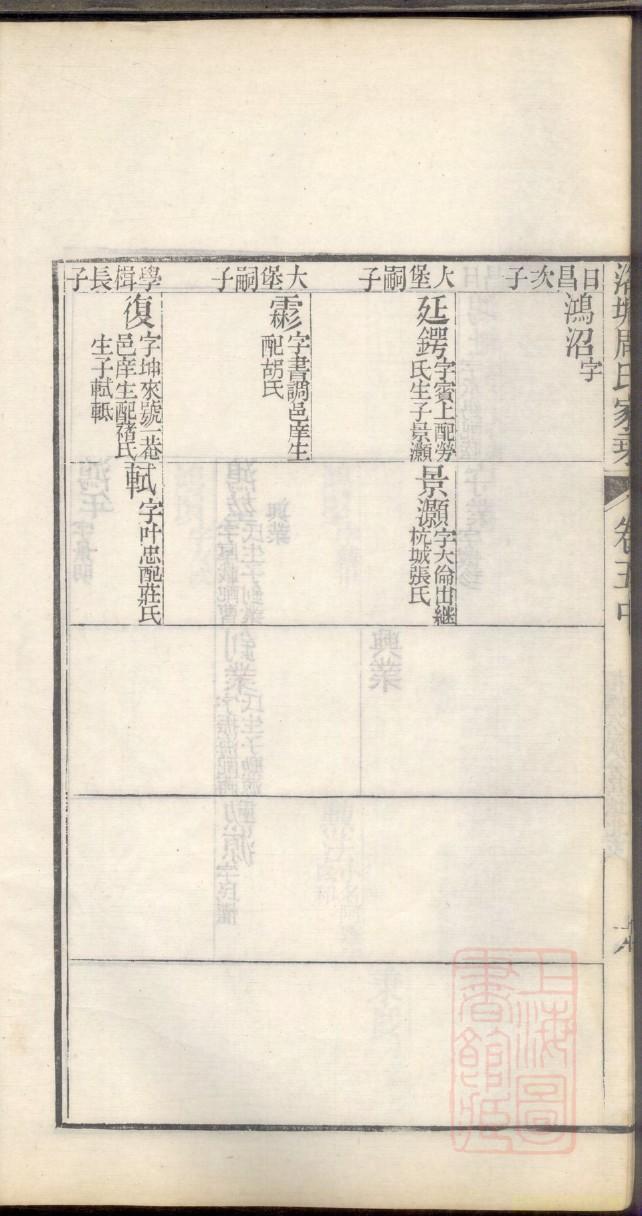 周氏家
卷五中
日昌次子
鴻沼字
大堡嗣子
延鍔字賓上配勞
氏生子景灝
景灝字大倫出繼
杭城張氏
大堡嗣子
霦字書調邑庠生
配胡氏
學楫長子
復字坤來號一菴
邑庠生配褚氏
生子軾軧
軾字叶忠配莊氏
上海圖
書館藏